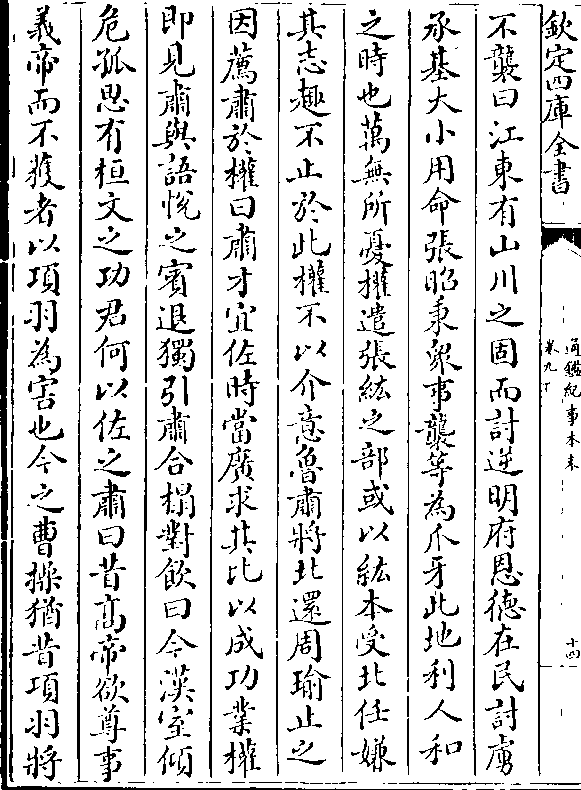 欽定四庫全書
通鑑紀事本末
卷九下
十四
不襲曰江東有山川之固而討逆明府恩德在民討虜
承基大小用命張昭秉衆事襲等為爪牙此地利人和
之時也萬無所憂權遣張紘之部或以紘本受北任嫌
其志趣不止於此權不以介意魯肅將北還周瑜止之
因薦肅於權曰肅才宜佐時當廣求其比以成功業權
即見肅與語悅之賓退獨引肅合榻對飲曰今漢室傾
危孤思有桓文之功君何以佐之肅曰昔高帝欲尊事
義帝而不獲者以項羽為害也今之曹操猶昔項羽將